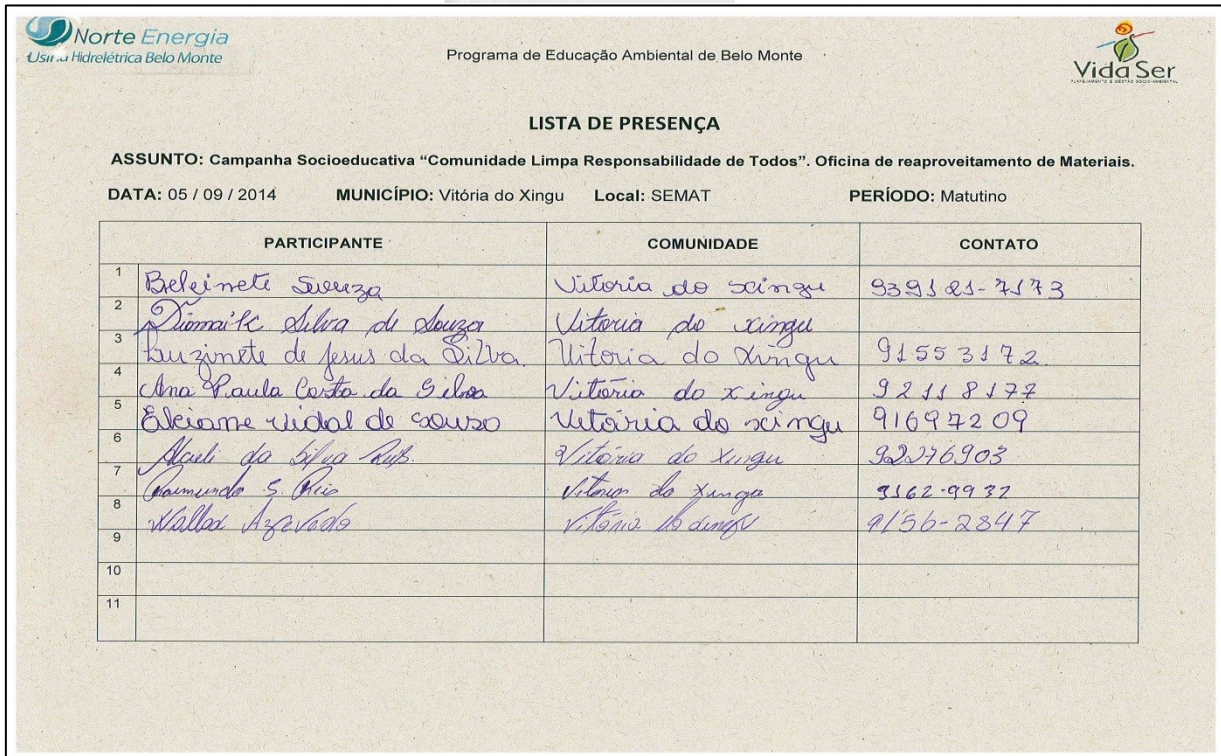 Norte Energia
Usina Hidrelétrica Belo Monte
Programa de Educação Ambiental de Belo Monte
Vida Ser
PLANEJAMENTO E GESTÃO SÓCIO-AMBIENTAL
LISTA DE PRESENÇA
ASSUNTO: Campanha Socioeducativa “Comunidade Limpa Responsabilidade de Todos”. Oficina de reaproveitamento de Materiais.
DATA: 05 / 09 / 2014 MUNICÍPIO: Vitória do Xingu Local: SEMAT PERÍODO: Matutino
PARTICIPANTE COMUNIDADE CONTATO
1 Souza Vitoria do xingu
2 Silva de Souza Vitoria do xingu
3 Luzinete de Jesus da Silva. Vitoria do Xingu 91553172
4 Ana Paula Costa da Silva Vitória do xingu 92118177
5 Elciane Vidal de souza Vitória do xingu 91697209
6 da Silva Vitória do Xingu 92276903
7 Raimundo S. Reis Vitoria do Xingu 9162-9932
8 Azevedo Vitória do 9156-2847
9
10
11